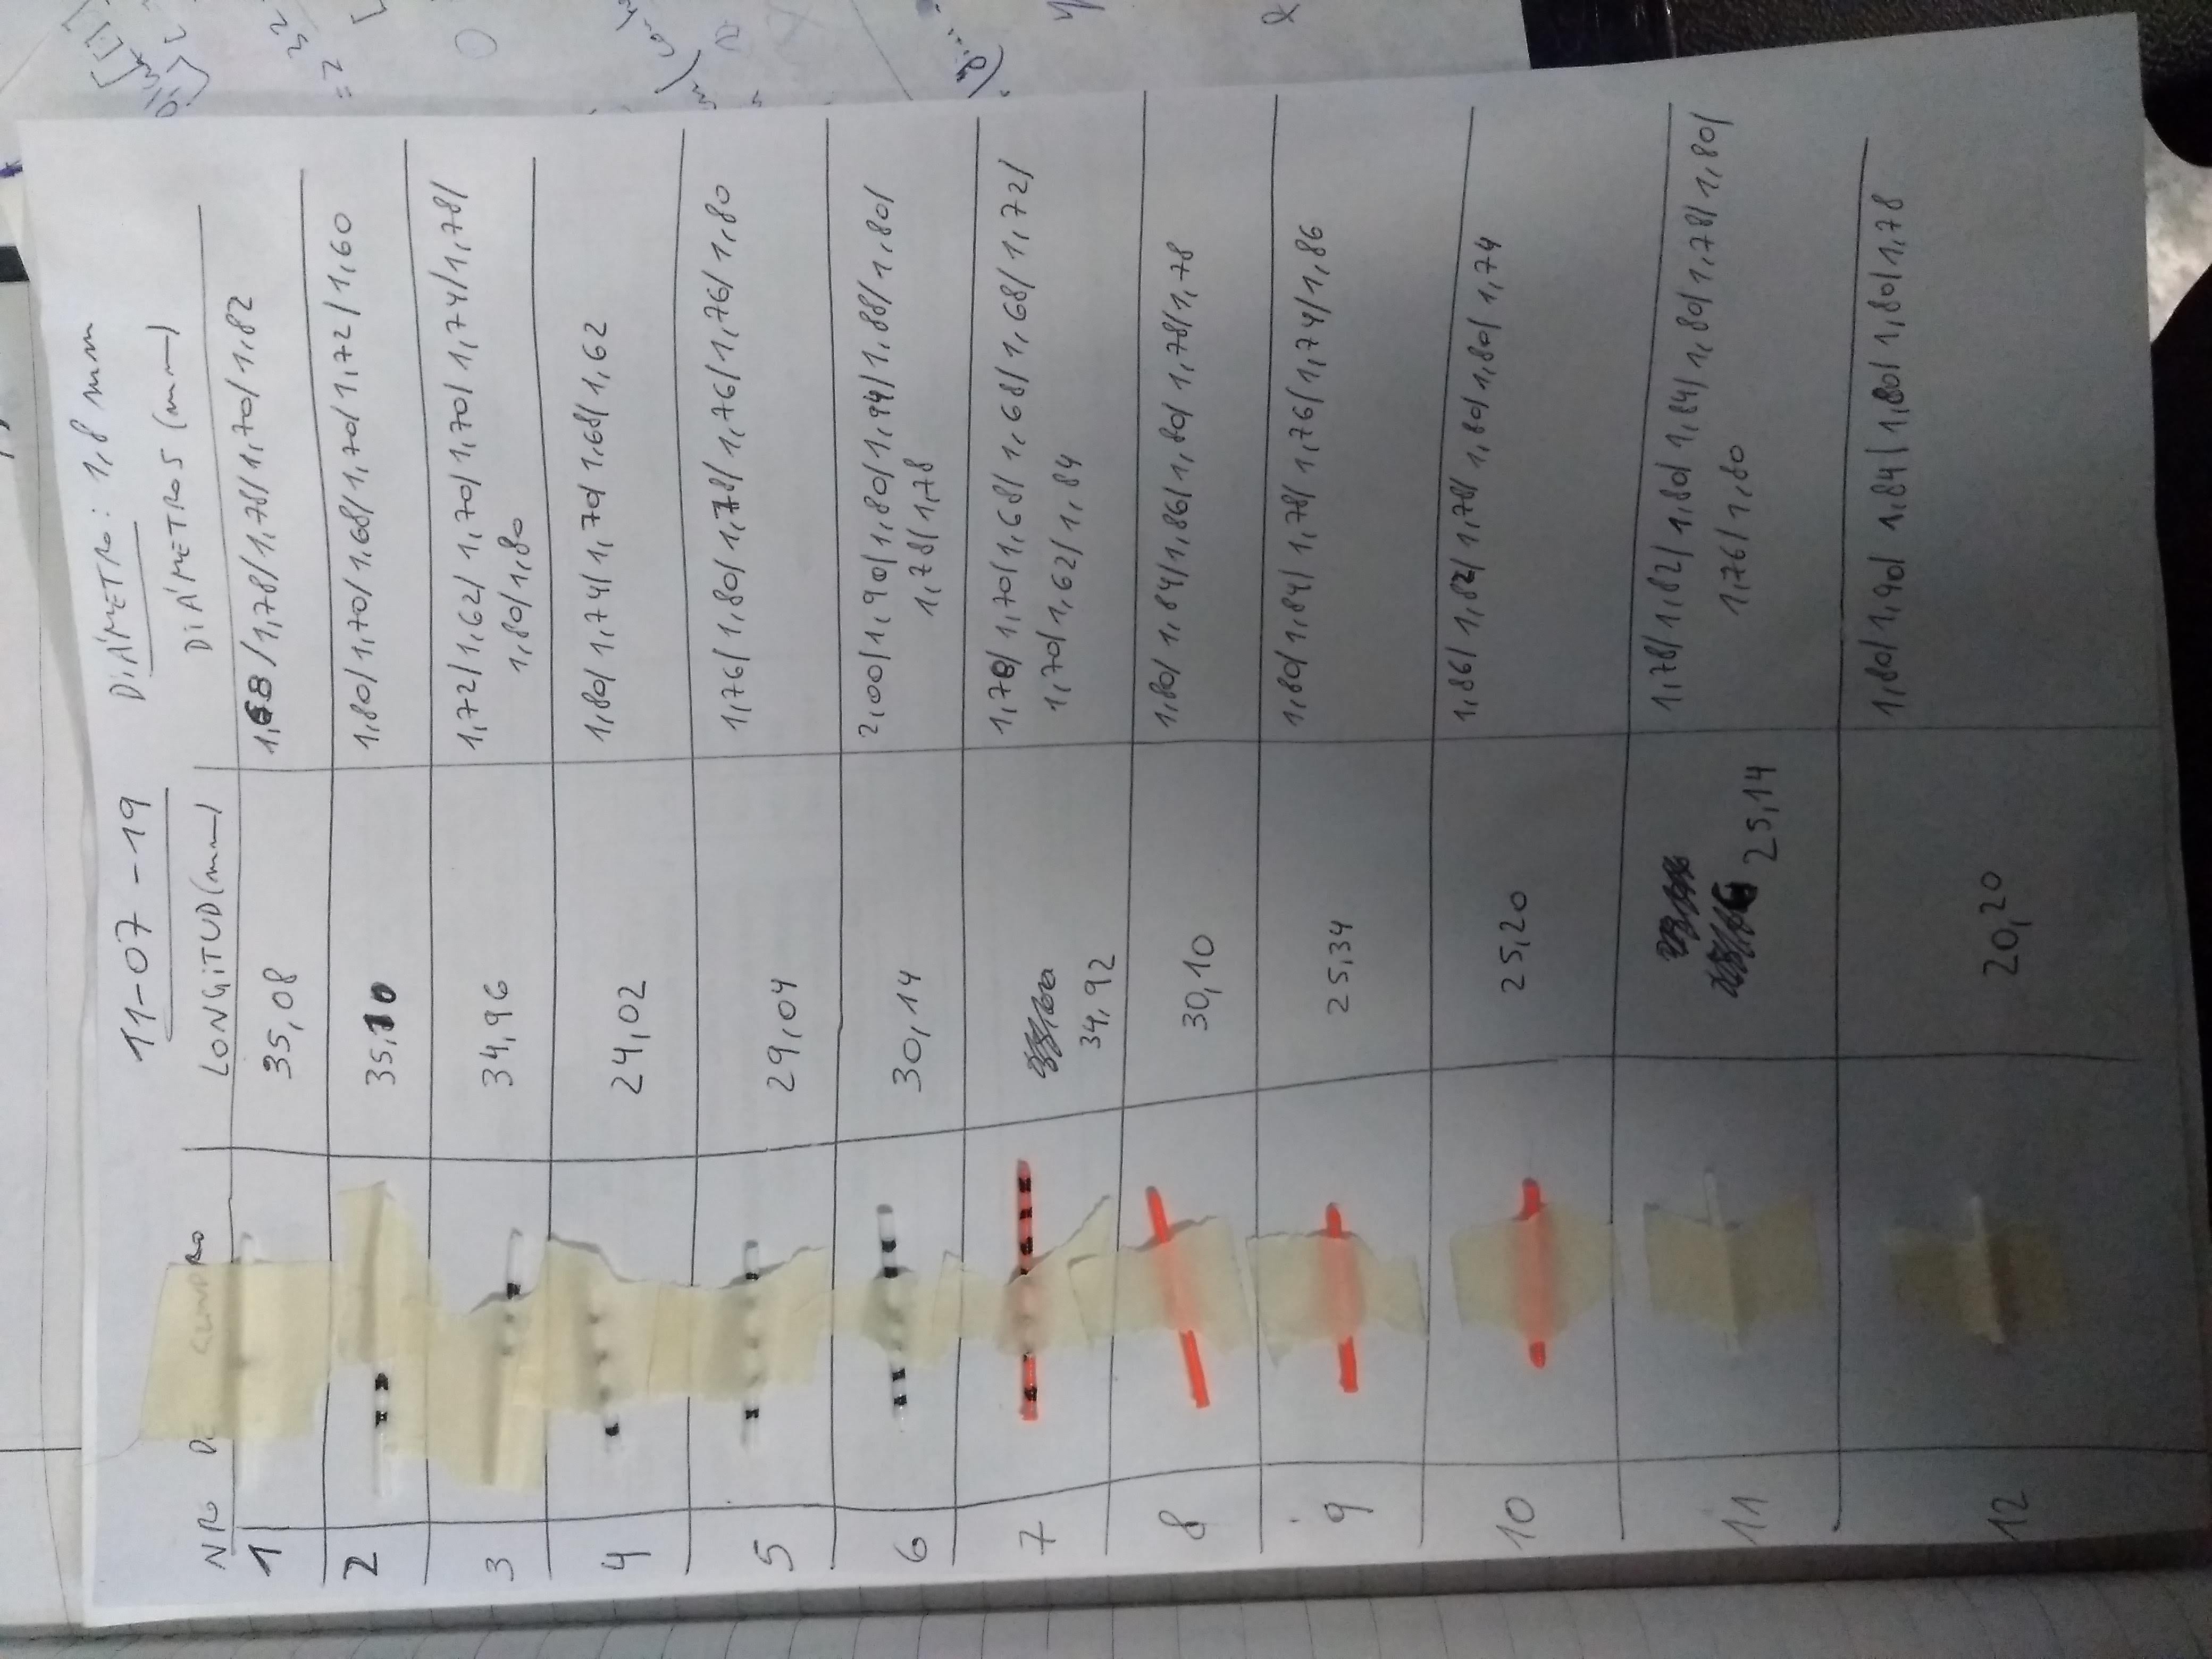 11-07-19
DIÁMETRO: 1,8 mm
NRO DE CILINDRO LONGITUD(mm) DIÁMETROS (mm)
1 35,08 1,68/1,78/1,78/1,70/1,82
2 35,10 1,80/1,70/1,68/1,70/1,72/1,60
3 34,96 1,72/1,62/1,70/1,70/1,74/1,78/
1,80/1,80
4 24,02 1,80/1,74/1,70/1,68/1,62
5 29,04 1,76/1,80/1,78/1,76/1,76/1,80
6 30,14 2,00/1,90/1,80/1,94/1,88/1,80/
1,78/1,78
7 34,92 1,70/1,70/1,68/1,68/1,68/1,72/
1,70/1,62/1,84
8 30,10 1,80/1,84/1,86/1,80/1,78/1,78
9 25,34 1,80/1,84/1,78/1,76/1,74/1,86
10 25,20 1,86/1,82/1,78/1,80/1,80/1,74
11 25,14 1,78/1,82/1,80/1,84/1,80/1,78/1,80/
1,76/1,80
12 20,20 1,80/1,90/1,84/1,80/1,80/1,78